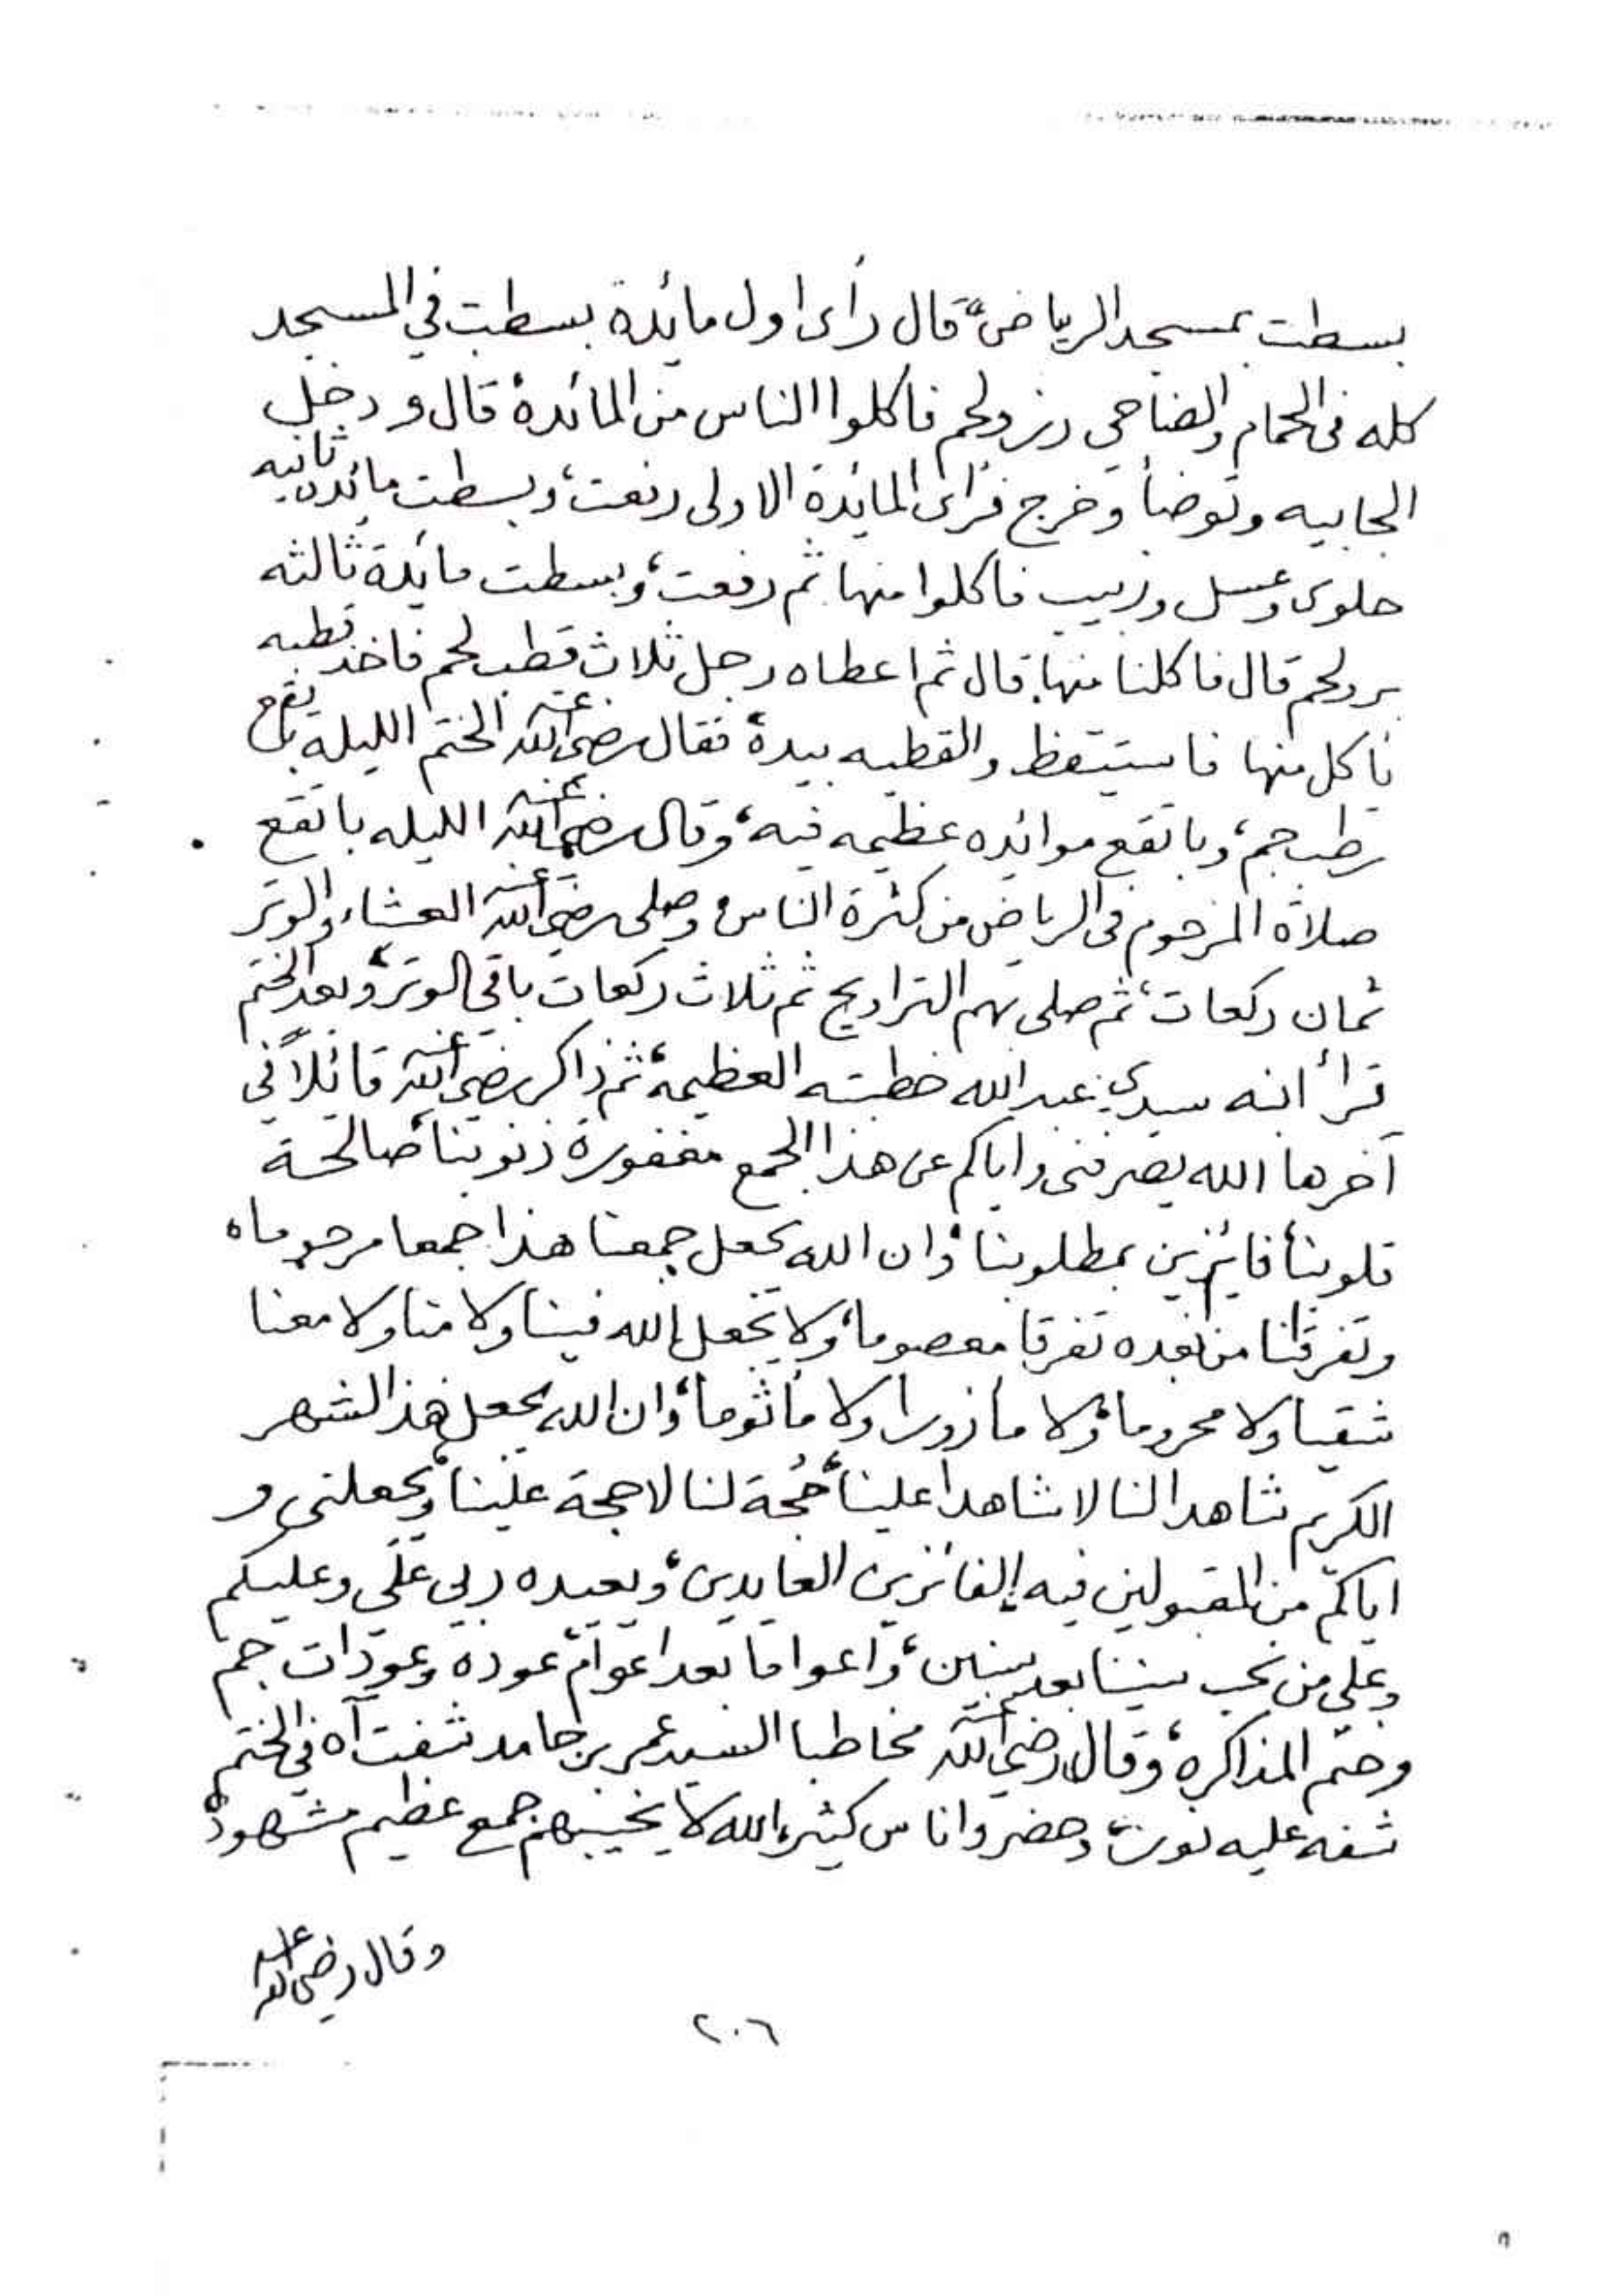 بسطت بمسجد الرياض، قال رأى اول مائدة بسطت في المسجد
كله في الحمام والضاحي رز ولحم فاكلوا الناس من المائدة، قال و دخل
الجابيه وتوضأ وخرج فرأى المائدة الاولى رفعت، وبسطت مائده ثانيه
حلوى وعسل وزبيب فاكلوا منها ثم رفعت، وبسطت مائدة ثالثه
بر ولحم قال فاكلنا منها، قال ثم اعطاه رجل ثلاث قطب لحم فاخذ قطبه
يأكل منها فاستيقظ والقطبه بيده، فقال رضي الله عنه الختم الليله بايقع
رطب جم، وباتقع موائده عظيمه فيه، وقال رضي الله عنه الليله باتقع
صلاة المزحوم في الرياض من كثرة الناس، وصلى رضي الله عنه العشاء والوتر
ثمان ركعات، ثم صلى بهم التراويح ثم ثلاث ركعات باقي الوتر، وبعد الختم
قرأ ابنه سيدي عبدالله خطبته العظيمة، ثم ذاكر رضي الله عنه قائلاً في
آخرها الله يصرفني واياكم عن هذا الجمع مغفورة ذنوبنا، صالحة
قلوبنا، فايزين بمطلوبنا، وان الله يجعل جمعنا هذا جمعا مرحوما،
وتفرقنا من بعده تفرقا معصوما، ولا يجعل الله فينا ولا منا ولا معنا
شقيا ولا محروما، ولا مأزورا ولا مأثوما، وان الله يجعل هذا الشهر
الكريم شاهدا لنا لا شاهدا علينا، حُجة لنا لا حجة علينا، ويجعلني و
اياكم من المقبولين فيه الفائزين العايدين، ويعيده ربي عليَّ وعليكم
وعلى من نحب سنينا بعد سنين، واعواما بعد اعوام، عوده وعودات جم
وختم المذاكره، وقال رضي الله عنه مخاطبا السيد عمر بن حامد شفت آه في الختم
شفه عليه نور، وحضروا ناس كثير، الله لا يخيبهم جمع عظيم مشهود،
وقال رضي الله عنه
٢٠٦